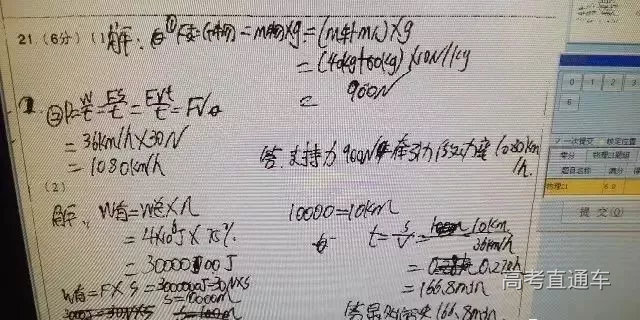 21.(6分)(1)解:①F支=G(车物)=m车物×g=(m车+m人)×g
=(40kg+50kg)×10N/kg
=900N
②P=W/t=FS/t=FVt/t=FV
=36km/h×30N
=1080km/h
答:支持力900N,牵引力的功率1080km/h.
(2)
解: W有=W总×η
=4×10⁶J×75%
=3000000J
W有=F×S=3000000J=30N×S
S=10000m
10000=10km
t=S/V=10km/36km/h
=0.278h
=166.8min
答:最 166.8min
0 1 2 3
6
一次提交 校定位置
零分 物理21题组
题目名称 满分
物理21 6.0
提 交(Q)
高考直通车